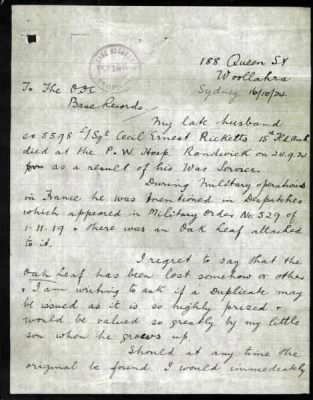 188 Queen St
Woollahra
Sydney 16/10/24
To The O.I/C
Base Records
My late husband
ex 5598 L/Sgt Cecil Ernest Ricketts 15th Fld Amb
died at the P. W. Hosp. Randwick on
as a result of his War Service.
During Military operations
in France he was mentioned in Despatches
which appeared in Military Order No. 529 of
1-11-19 & there was an Oak Leaf attached
to it.
I regret to say that the
Oak Leaf has been lost somehow or other
& I am writing to ask if a Duplicate may
be issued as it is so highly prized &
would be valued so greatly by my little
son when he grows up.
Should at any time the
original be found I would immediately